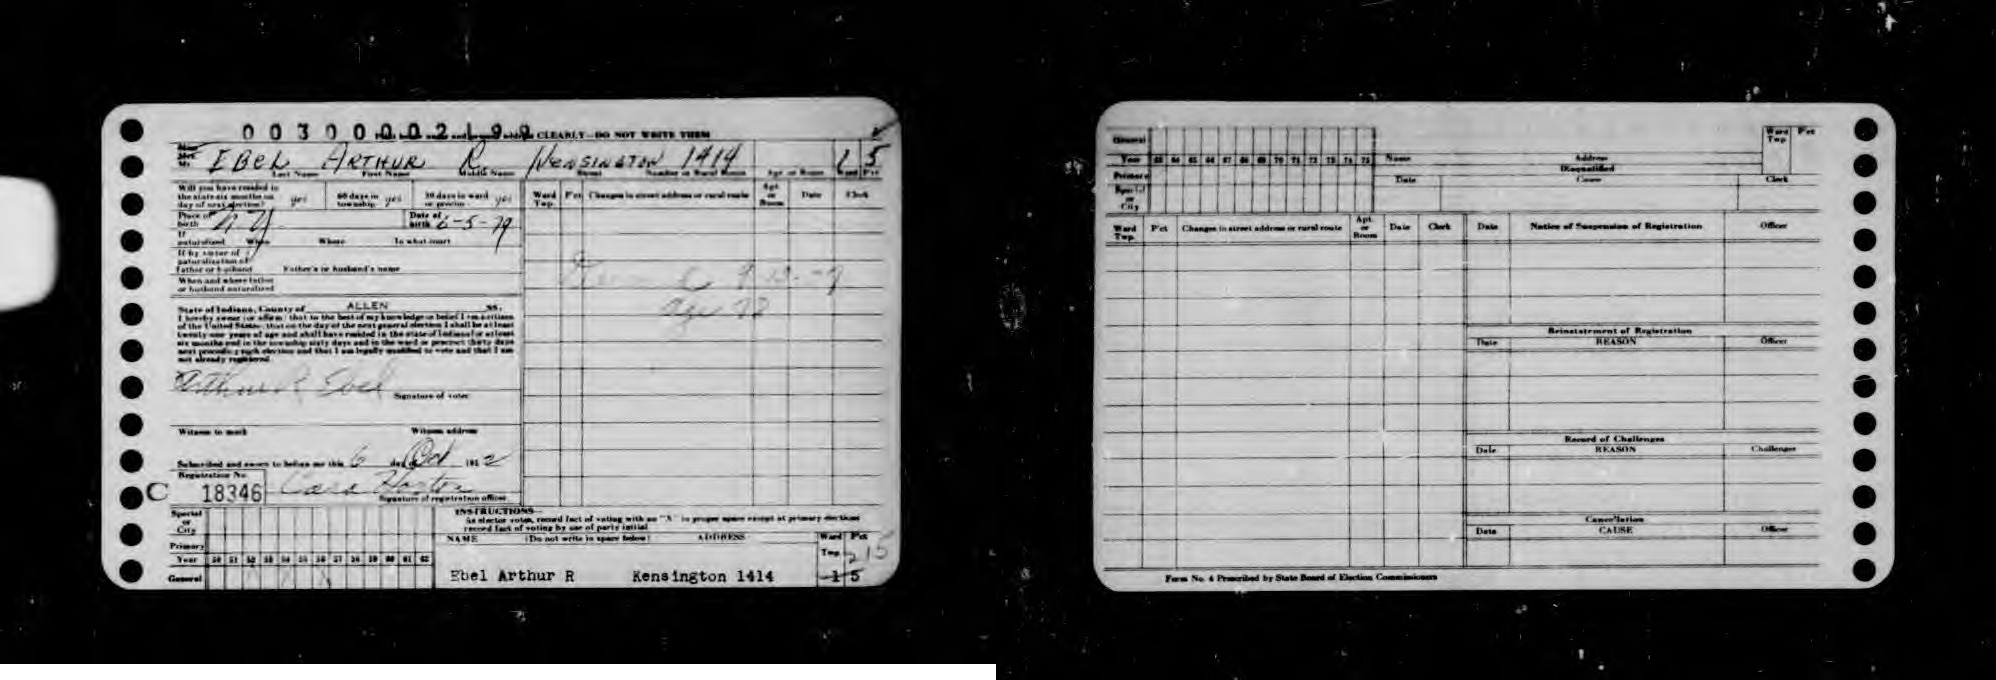 00300002199
CLEARLY—DO NOT WRITE THEM
Mrs.
Mr.
EBEL ARTHUR R KENSINGTON 1414 1 5
Last Name First Name Middle Name Street Number or Rural Route Apt. or Room Ward Pct
Will you have resided in the state six months on day of next election? yes 60 days in township yes 30 days in ward or precinct yes
Place of birth N Y Date of birth 6-5-79
If naturalized When Where In what court
If by virtue of naturalization of father or husband Father's or husband's name
When and where father or husband naturalized
State of Indiana, County of ALLEN ss:
I hereby swear (or affirm) that to the best of my knowledge or belief I am a citizen
of the United States; that on the day of the next general election I shall be at least
twenty-one years of age and shall have resided in the state of Indiana for at least
six months and in the township sixty days and in the ward or precinct thirty days
next preceding such election and that I am legally qualified to vote and that I am
not already registered.
Arthur R Ebel
Signature of voter
Witness to mark Witness address
Subscribed and sworn to before me this 6 day Oct 1952
Registration No.
C 18346
Signature of registration officer
Ward Twp. Pct Changes in street address or rural route Apt. or Room Date Clerk
age 78
Special or City
Primary
Year 50 51 52 53 54 55 56 57 58 59 60 61 62
General X X X
INSTRUCTIONS—
As elector votes, record fact of voting with an "X" in proper space except at primary elections
record fact of voting by use of party initial
NAME (Do not write in space below) ADDRESS Ward Twp. Pct
215
Ebel Arthur R Kensington 1414 1 5
General
Year 63 64 65 66 67 68 69 70 71 72 73 74 75
Primary
Special or City
Name Address
Ward Twp Pct
Disqualified
Date Cause Clerk
Ward Twp. Pct Changes in street address or rural route Apt. or Room Date Clerk
Date Notice of Suspension of Registration Officer
Reinstatement of Registration
Date REASON Officer
Record of Challenges
Date REASON Challenger
Cancellation
Date CAUSE Officer
Form No. 4 Prescribed by State Board of Election Commissioners